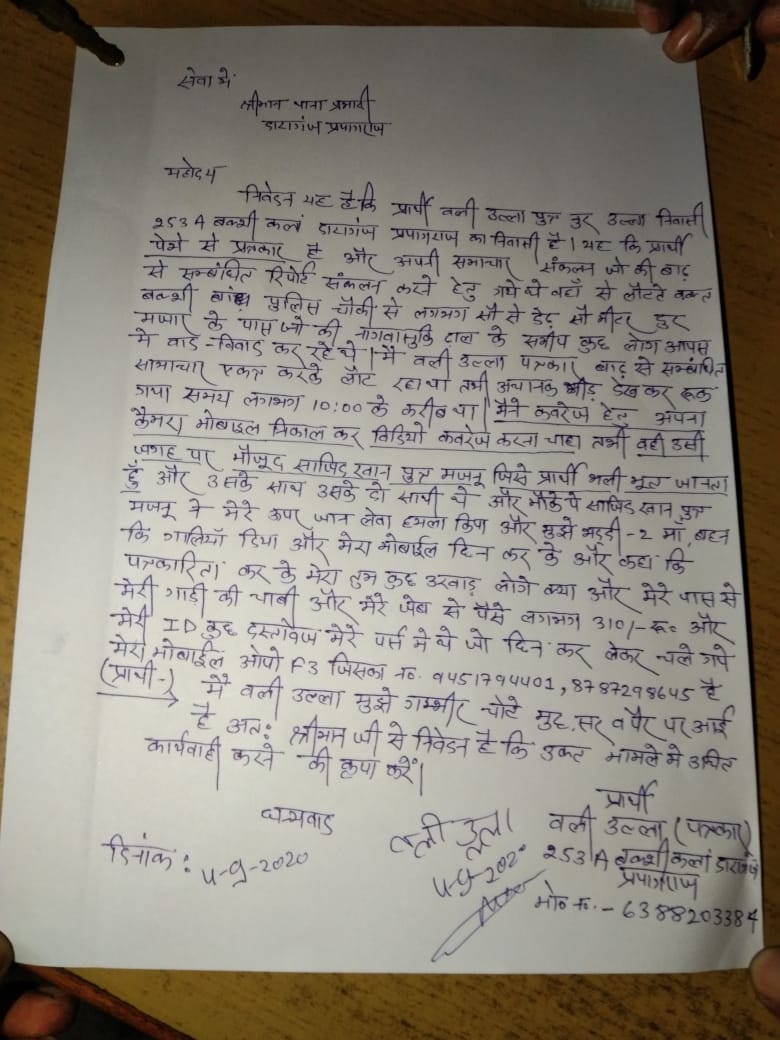 सेवा में
श्रीमान थाना प्रभारी
दारागंज प्रयागराज
महोदय
निवेदन यह है कि प्रार्थी वली उल्ला पुत्र नुर उल्ला निवासी
253 A बक्शी कलां दारागंज प्रयागराज का निवासी है। यह कि प्रार्थी
पेशे से पत्रकार है और अपनी समाचार संकलन जो की बाढ़
से सम्बंधित रिपोर्ट संकलन करने हेतु गये थे वहाँ से लौटते वक्त
बक्शी बांध पुलिस चौकी से लगभग सौ से डेढ़ सौ मीटर दुर
मजार के पास जो की नागवासुकि ढाल के समीप कुछ लोग आपस
मे वाद-विवाद कर रहे थे। मैं वली उल्ला पत्रकार बाढ़ से सम्बंधित
सामाचार एकत्र करके लौट रहा था तभी अचानक भीड़ देख कर रूक
गया समय लगभग 10:00 के करीब था। मैंने कवरेज हेतु अपना
कैमरा मोबाइल निकाल कर विडियो कवरेज करना चाहा तभी वही उसी
जगह पर मौजूद साजिद खान पुत्र मजनू जिसे प्रार्थी भली भूत जानता
हुँ और उसके साथ उसके दो साथी थे और मौके पे साजिद खान पुत्र
मजनू ने मेरे ऊपर जान लेवा हमला किया और मुझे भद्दी-2 माँ, बहन
कि गालियाँ दिया और मेरा मोबाईल छिन कर के और कहा कि
पत्रकारिता कर के मेरा तुम कुछ उखाड़ लोगे क्या और मेरे पास से
मेरी गाड़ी की चाबी और मेरे जेब से पैसे लगभग 310/- रू० और
मेरी ID कुछ दस्तावेज मेरे पर्स मे थे जो छिन कर लेकर चले गये
मेरा मोबाईल ओपो F3 जिसका नं. 9451794401, 8787298645 है
(प्रार्थी-) मैं वली उल्ला मुझे गम्भीर चोटे मुह, सर व पैर पर आई
है अतः श्रीमान जी से निवेदन है कि उक्त मामले मे उचित
कार्यवाही करने की कृपा करें।
धन्यवाद
प्रार्थी
वली उल्ला (पत्रकार)
253 A बक्शी कलां दारागंज
प्रयागराज
मो० नं.- 6388203384
वली उल्ला
4-9-2020
दिनांक: 4-9-2020